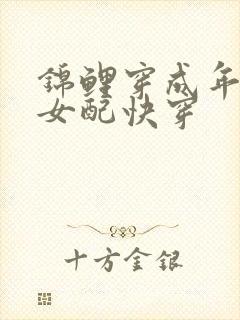 锦鲤穿成年
女配快穿
十方金银